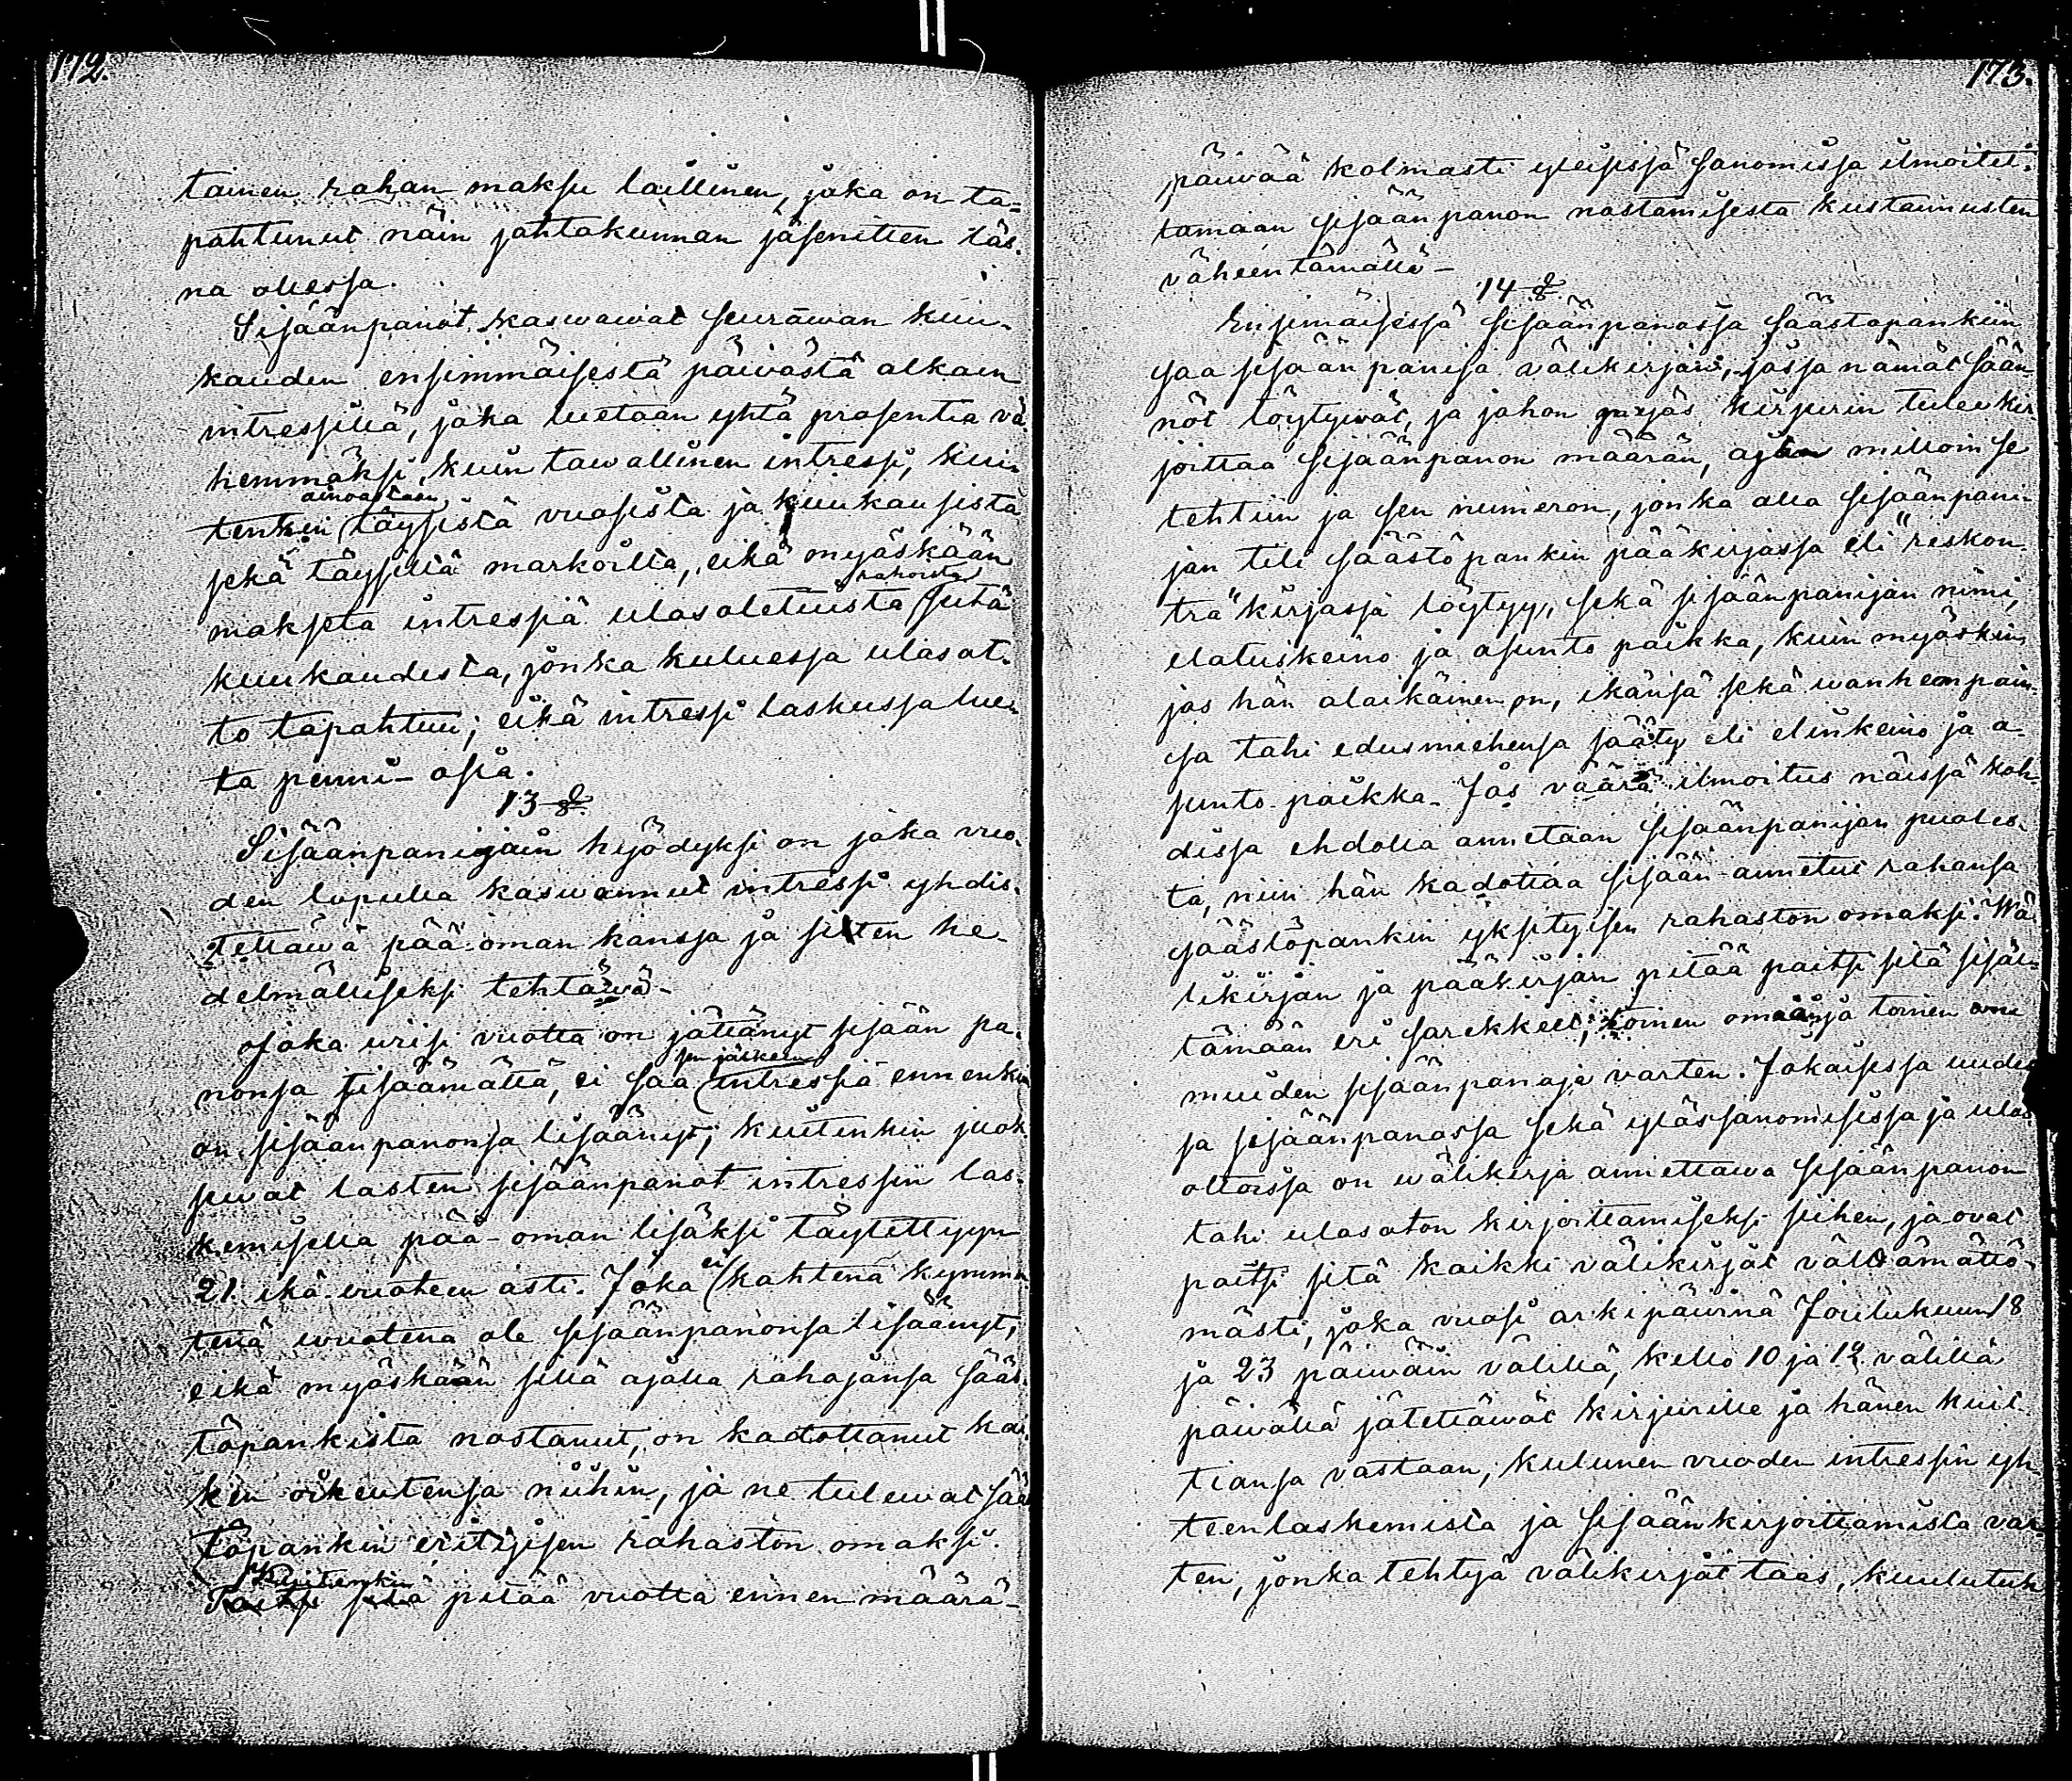 172.
tainen rahan maksu laillinen, joka on ta=
pahtunut näin johtokunnan jäsenitten läs-
na ollessa.
Sisäänpanot kaswawat seurawan kuu-
kauden ensimmäisestä päivästä alkain
intressillä, joka luetaan yhtä prosentia vä-
hemmäksi kuin tawallinen intressi, kui-
ainoastaan
tenkin täysistä vuosista ja kuukausista
sekä täysillä markoilla, eikä myöskään
rahoista
makseta intressiä ulosotetuista siitä
kuukaudesta, jonka kuluessa ulosot-
to tapahtuu; eikä intressi laskussa lue-
ta penni-osia.
13 §.
Sisäänpanijain hyödyksi on joka vuo-
den lopulla kaswannut intressi yhdis-
tettäwä pää-oman kanssa ja sitten he-
delmälliseksi tehtäwä-
Joka wiisi vuotta on jättänyt sisään pa-
sen jälkeen
nonsa lisäämättä, ei saa intressiä ennenkun
on sisäänpanonsa lisäänyt; kuitenkin juok-
sewat lasten sisäänpanot intressiin las-
kemisella pää-oman lisäksi täytettyyn
21 ikä-vuoteen asti. Joka ei kahtena kymme-
tenä wuotena ole sisäänpanonsa lisäänyt,
eikä myöskään sillä ajalla rahojansa sääs-
töpankista nostanut, on kadottanut kai-
ken oikeutensa niihin, ja ne tulewat sääs
töpankin erityisen rahaston omaksi.
Kuitenkin
Paitsi sitä pitää vuotta ennen määrä-
173.
päivää kolmasti yleisissä sanomissa ilmoitet-
tamaan sisäänpanon nostamisesta kustannusten
väheentämällä-
14 §.
Ensimäisessä sisäänpanossa säästöpankiin
saa sisäänpanija välikirjan, jossa nämät sään-
nöt löytywät, ja johon myös kirjurin tulee kir-
joittaa sisäänpanon määrän, ajan milloin se
tehtiin ja sen numeron, jonka alla sisäänpani-
jan tili säästöpankin pääkirjassa eli "reskon-
tra" kirjassa löytyy, sekä sisäänpanijan nimi,
elatuskeino ja asunto paikka, kuin myöskin,
jos hän alaikäinen on, ikänsä sekä wanhempain-
sa tahi edusmiehensä sääty eli elinkeino ja a-
sunto paikka. Jos väärä ilmoitus näissä koh-
dissa ehdolla annetaan sisäänpanijan puoles-
ta, niin hän kadottaa sisään annetut rahansa
säästöpankin yksityisen rahaston omaksi. Wä-
likirjan ja pääkirjan pitää paitsi sitä sisäl-
tämään eri sarekkeet, toinen oman ja toinen
muiden sisäänpanoja varten. Jokaisessa uudes
sa sisäänpanossa sekä ylössanomisissa ja ulos
ottoissa on wälikirja annettawa sisäänpanon
tahi ulosoton kirjoittamiseksi siihen, ja ovat
paitsi sitä kaikki välikirjat välttämättö-
mästi, joka vuosi arkipäivinä Joulukuun 18
ja 23 päiwäin välillä, kello 10 ja 12 välillä
päivällä jätettäwät kirjurille ja hänen kuit-
tiansa vastaan, kulunen vuoden intressin yh-
teenlaskemista ja sisäänkirjoittamista var-
ten, jonka tehtyä välikirjat taas, kuulutuk